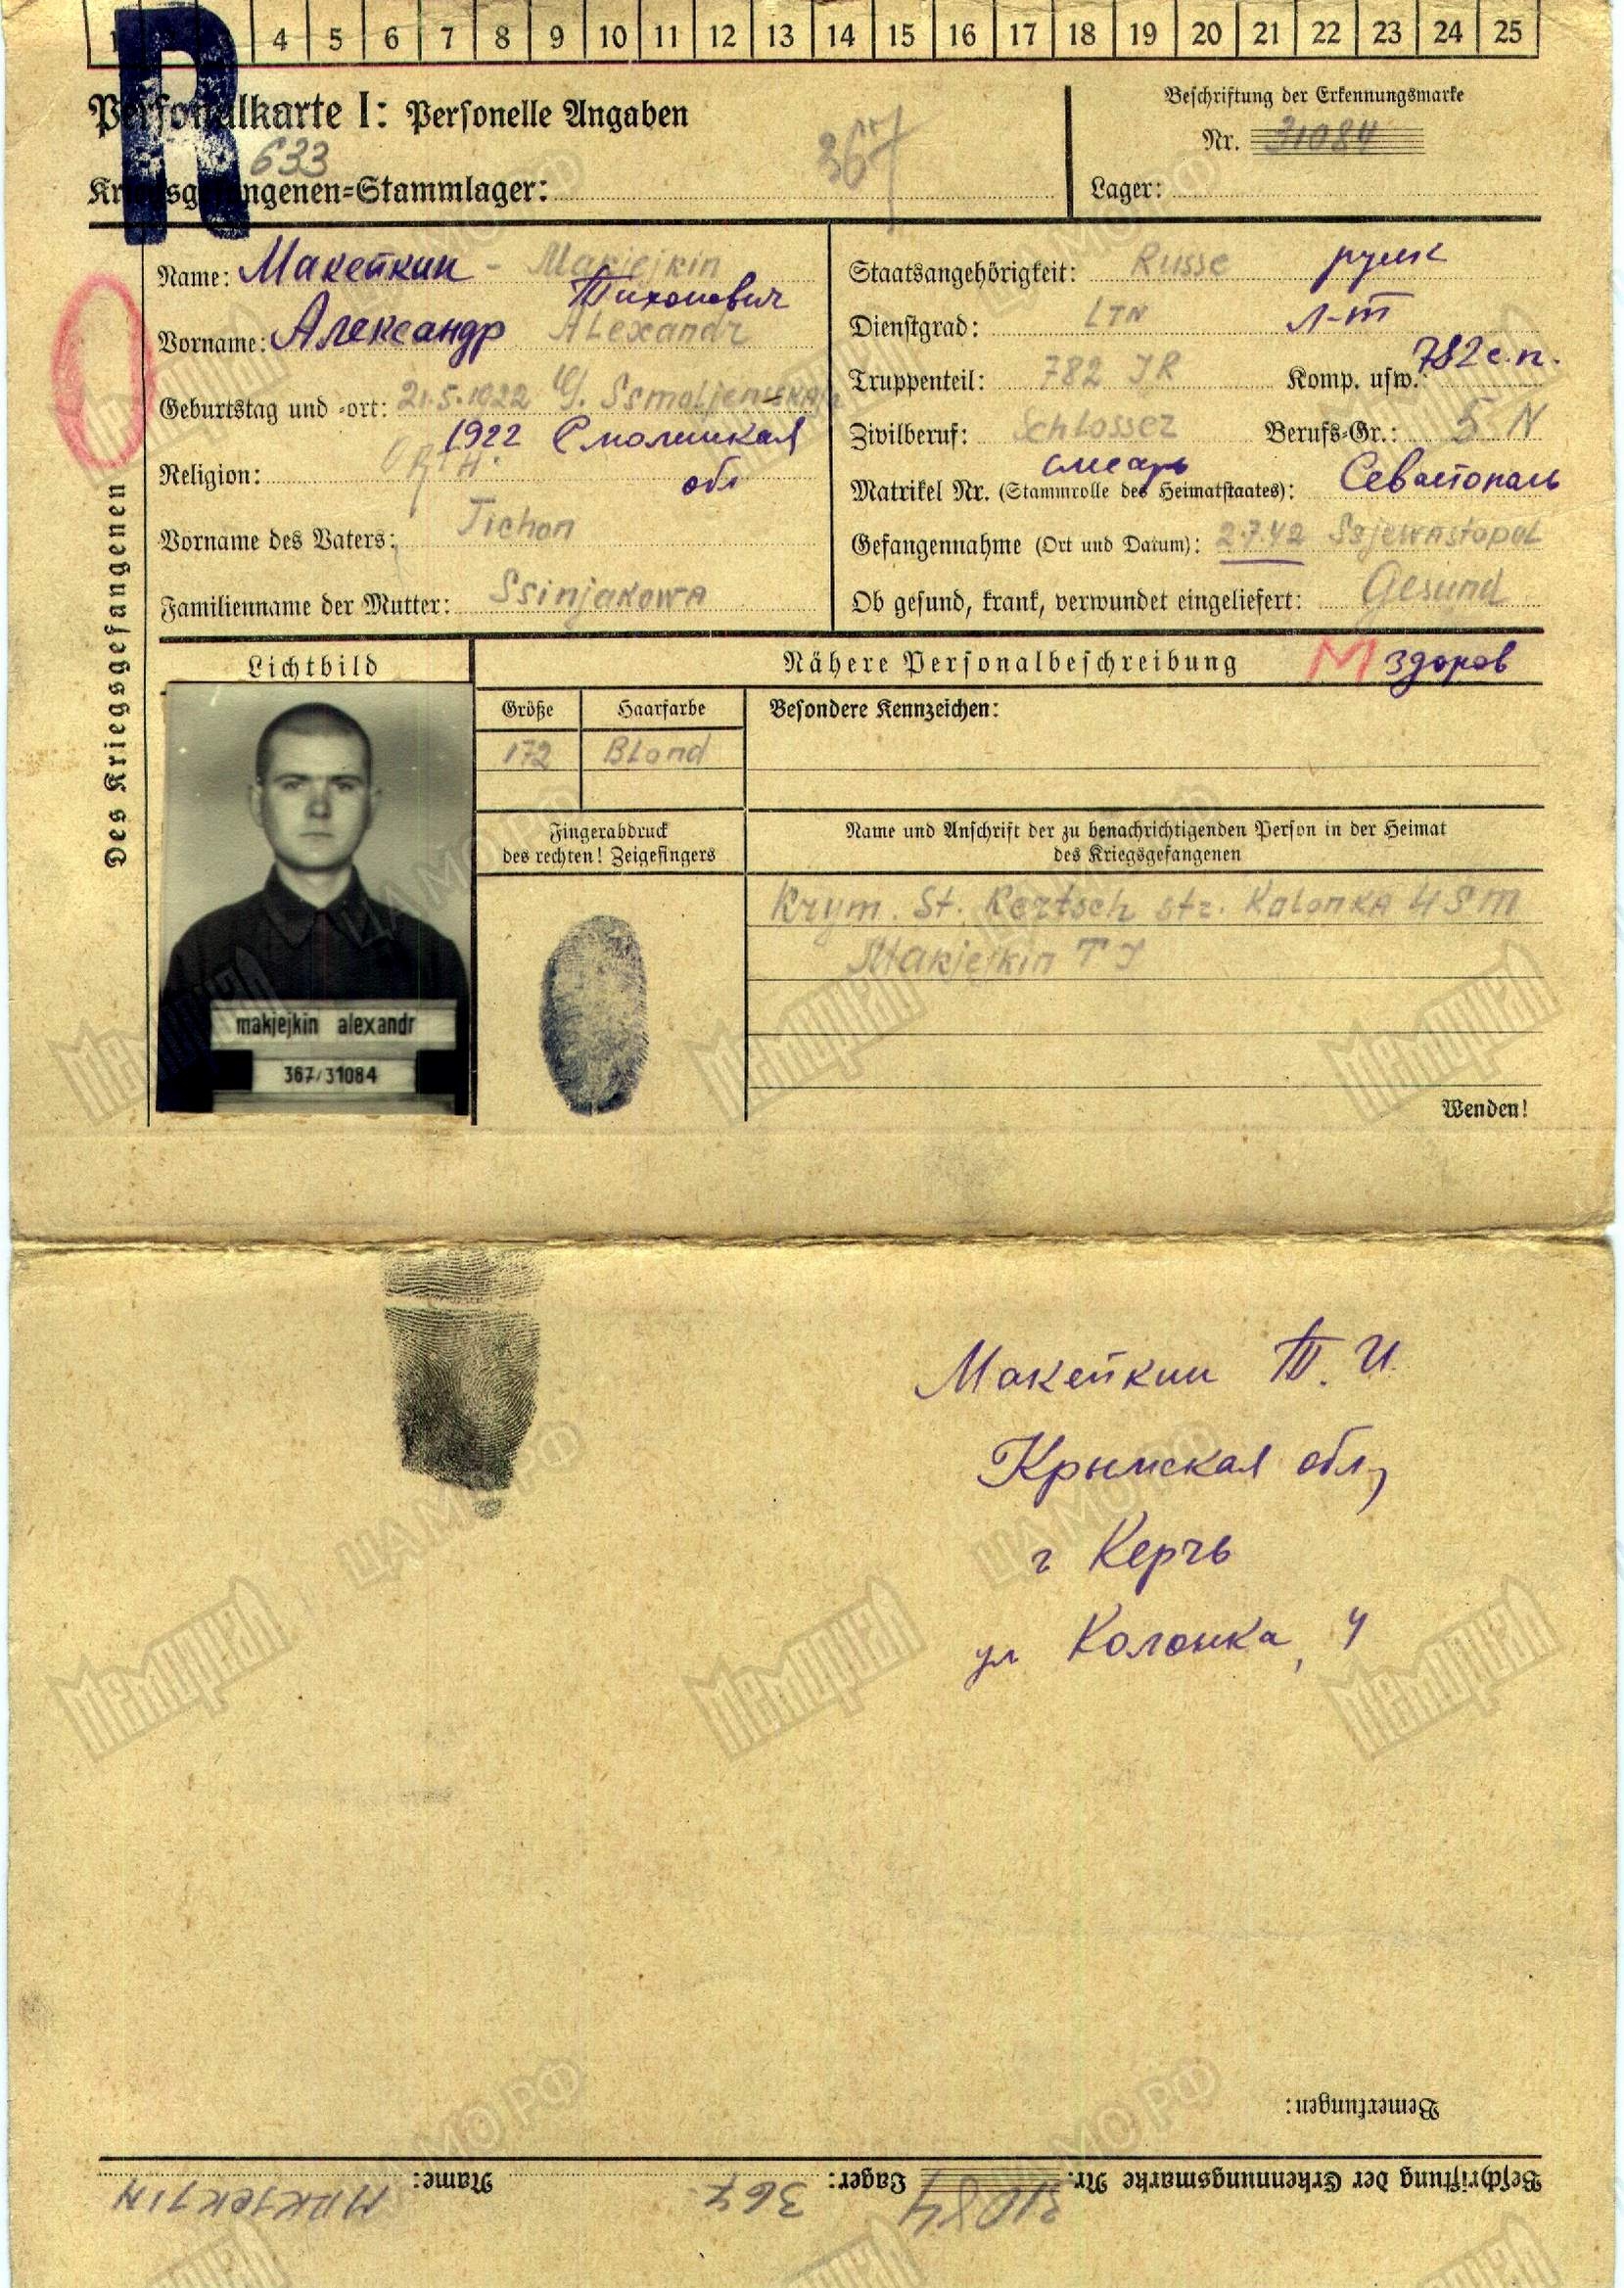 4 5 6 7 8 9 10 11 12 13 14 15 16 17 18 19 20 21 22 23 24 25
R
Personalkarte I: Personelle Angaben
Beschriftung der Erkennungsmarke
Nr. 31084
633
367
Kriegsgefangenen-Stammlager:
Lager:
Des Kriegsgefangenen
Name: Макейкин - Makjejkin
Тихонович
Vorname: Александр Alexandr
Geburtstag und -ort: 21.5.1922 Ssmoljenskaja
1922 Смоленская
обл
Religion:
Vorname des Vaters: Tichon
Familienname der Mutter: Ssinjakowa
Staatsangehörigkeit: Russe русск
Dienstgrad: LTN л-т
Truppenteil: 782 IR Komp. usw.: 782 с.п.
Zivilberuf: Schlosser Berufs-Gr.: 5 N
слесарь
Matrikel Nr. (Stammrolle des Heimatstaates): Севастополь
Gefangennahme (Ort und Datum): 2.7.42 Ssjewastopol
Ob gesund, krank, verwundet eingeliefert: Gesund
Lichtbild
Nähere Personalbeschreibung M здоров
Größe Haarfarbe Besondere Kennzeichen:
172 Blond
Fingerabdruck
des rechten! Zeigefingers
Name und Anschrift der zu benachrichtigenden Person in der Heimat
des Kriegsgefangenen
Krym. St. Kertsch str. Kolonka 4
Makjejkin T I
makjejkin alexandr
367/31084
Wenden!
Макейкин Т. И.
Крымская обл,
г Керчь
ул Колонка, 4
Bemerkungen:
Beschriftung der Erkennungsmarke Nr. 31084 Lager: 367 Name: MAKJEKJIN
Мемориал
ЦАМО РФ